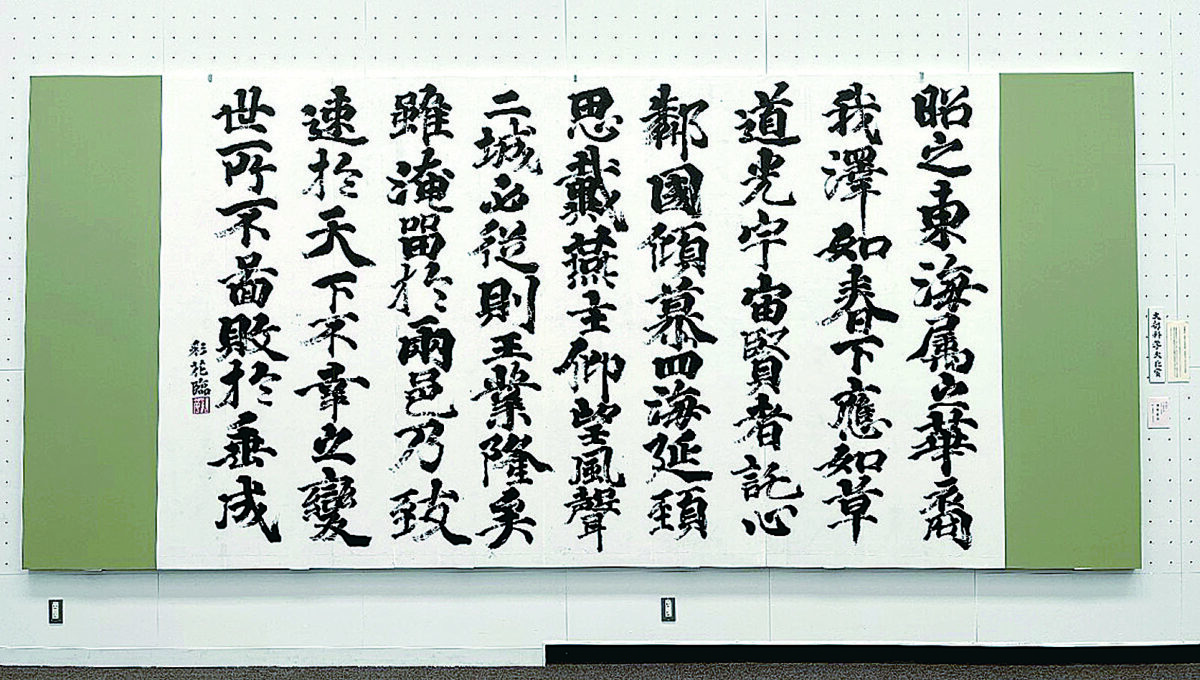 昭之東海属之華裔
我澤如春下應如草
道光宇宙賢者託心
鄰國傾慕四海延頸
思戴燕主仰望風聲
二城必從則王業隆矣
雖淹留於兩邑乃致
速於天下不幸之變
世所不圖敗於垂成
彩花臨
文部科学大臣賞